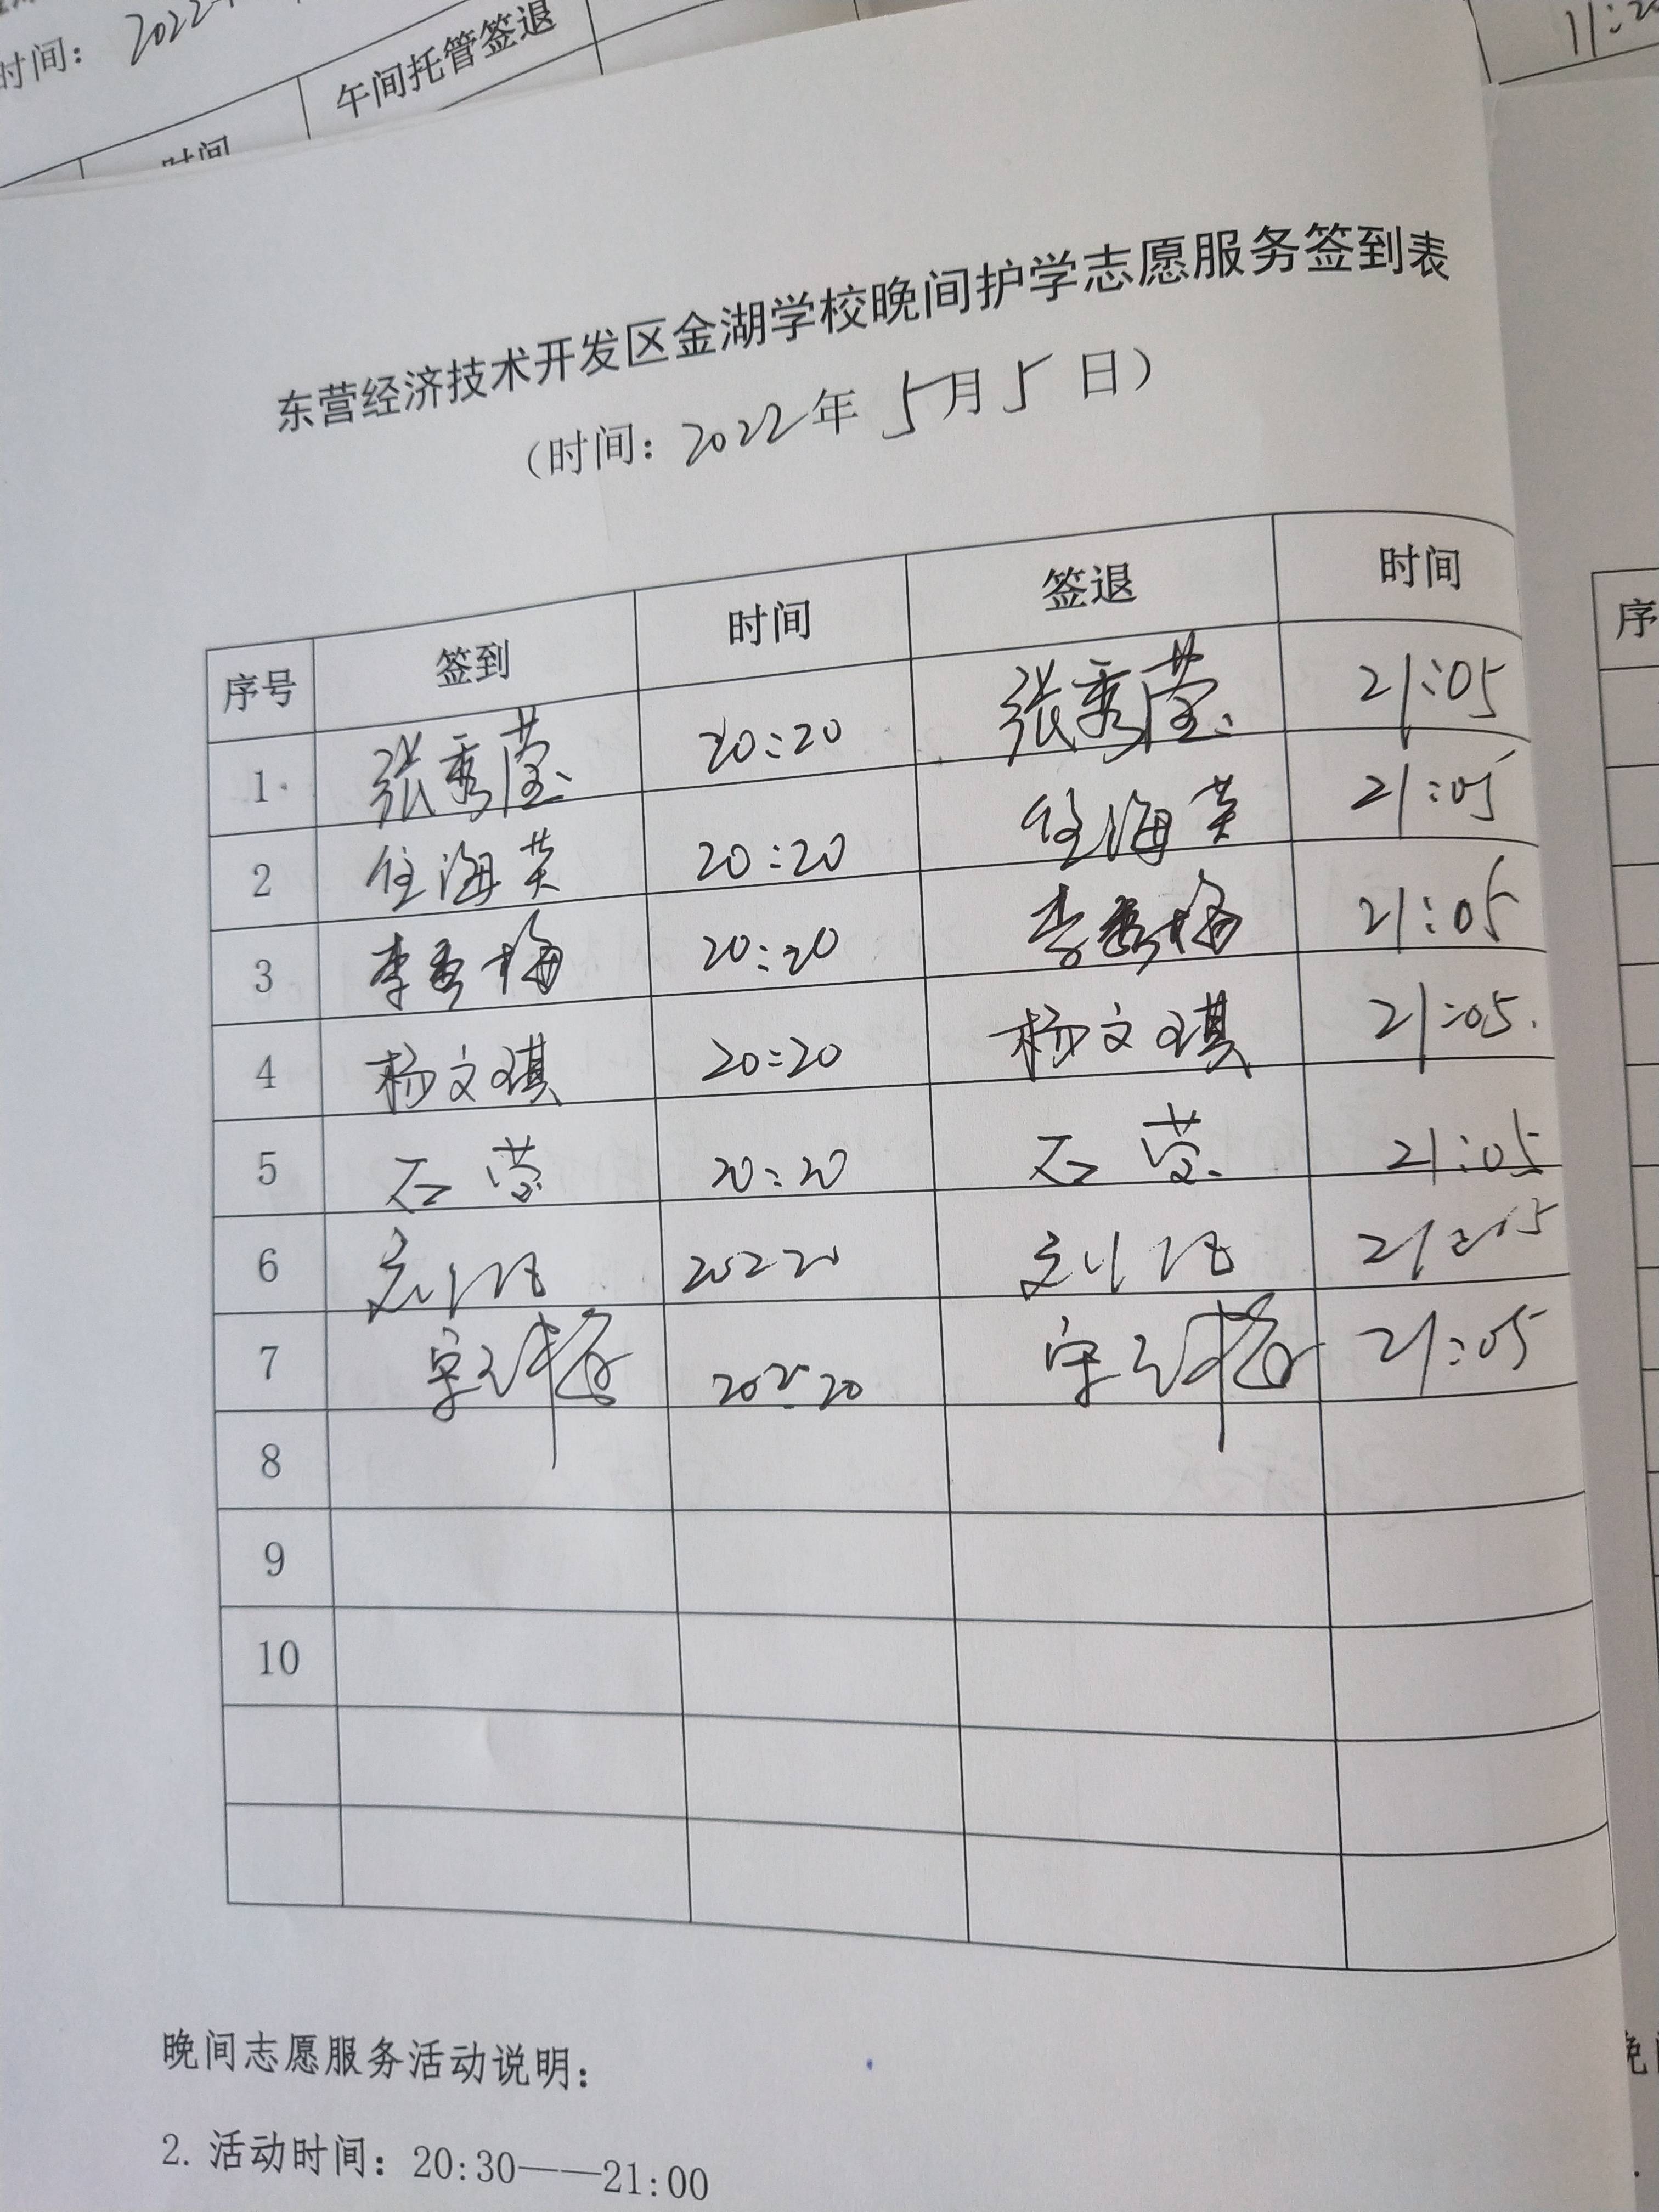 时间：2022
午间托管签退
时间
东营经济技术开发区金湖学校晚间护学志愿服务签到表
（时间：2022年5月5日）
序号 签到 时间 签退 时间
1 张秀莹 20:20 张秀莹 21:05
2 任海英 20:20 任海英 21:05
3 李秀梅 20:20 李秀梅 21:05
4 杨文琪 20:20 杨文琪 21:05
5 石莹 20:20 石莹 21:05
6 20:20 21:05
7 20:20 21:05
8
9
10
晚间志愿服务活动说明：
2. 活动时间：20:30——21:00
序